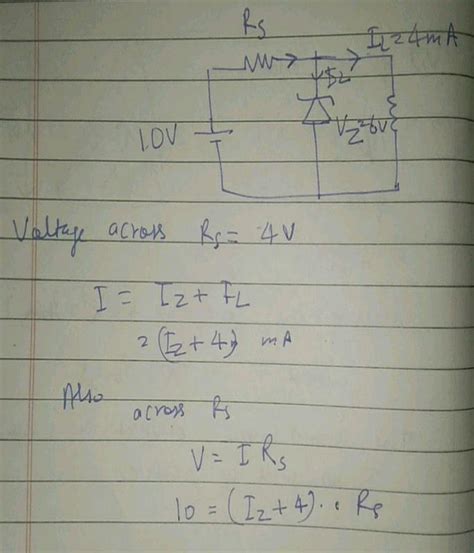 Rs
IL=4mA
Iz
10V
Vz=6V
Voltage across Rs = 4V
I = Iz + IL
= (Iz + 4) mA
Also
across Rs
V = I Rs
10 = (Iz + 4) . . Rs